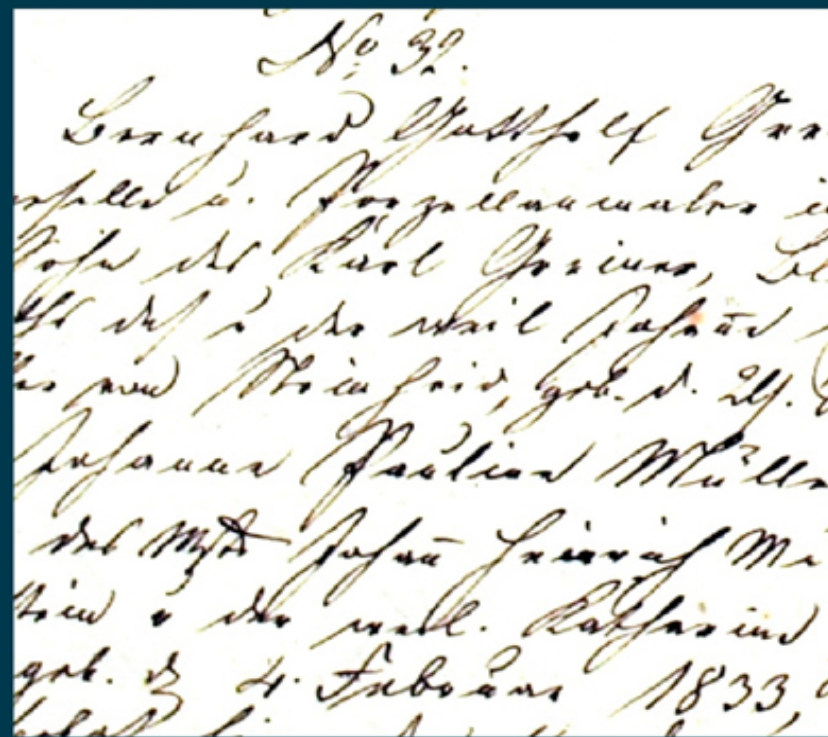 No 32.
Bernhard Gotthelf Gre
geselle u. Porzellanmaler i
Sohn des Karl Greiner, Bl
das. u der weil Johañe
von Steinheid, geb. d. 24.
Johanne Pauline Mülle
des Mstr Johañ Heinrich Mü
stein u der weil. Katharine
geb. d 4. Februar 1833,